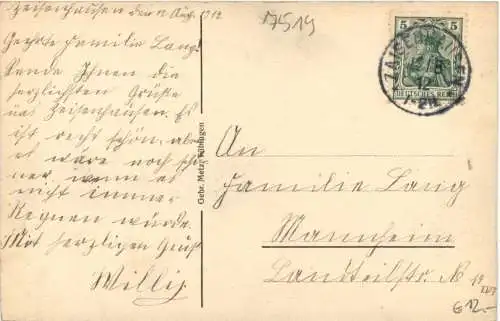 Zeisenhausen den 12 Aug. 1912
Geehrte Familie Lang!
Sende Ihnen die
herzlichsten Grüße
aus Zeisenhausen. Es
ist recht schön, aber
es wäre noch schö
ner wenn es
nicht immer
Regnen würde.
Mit herzligen Gruß
Willy
Gebr. Metz, Tübingen
17519
5 5
DEUTSCHES REICH
12
7-8N
An
Familie Lang
Mannheim
Landteilstr. № 19
G12.-